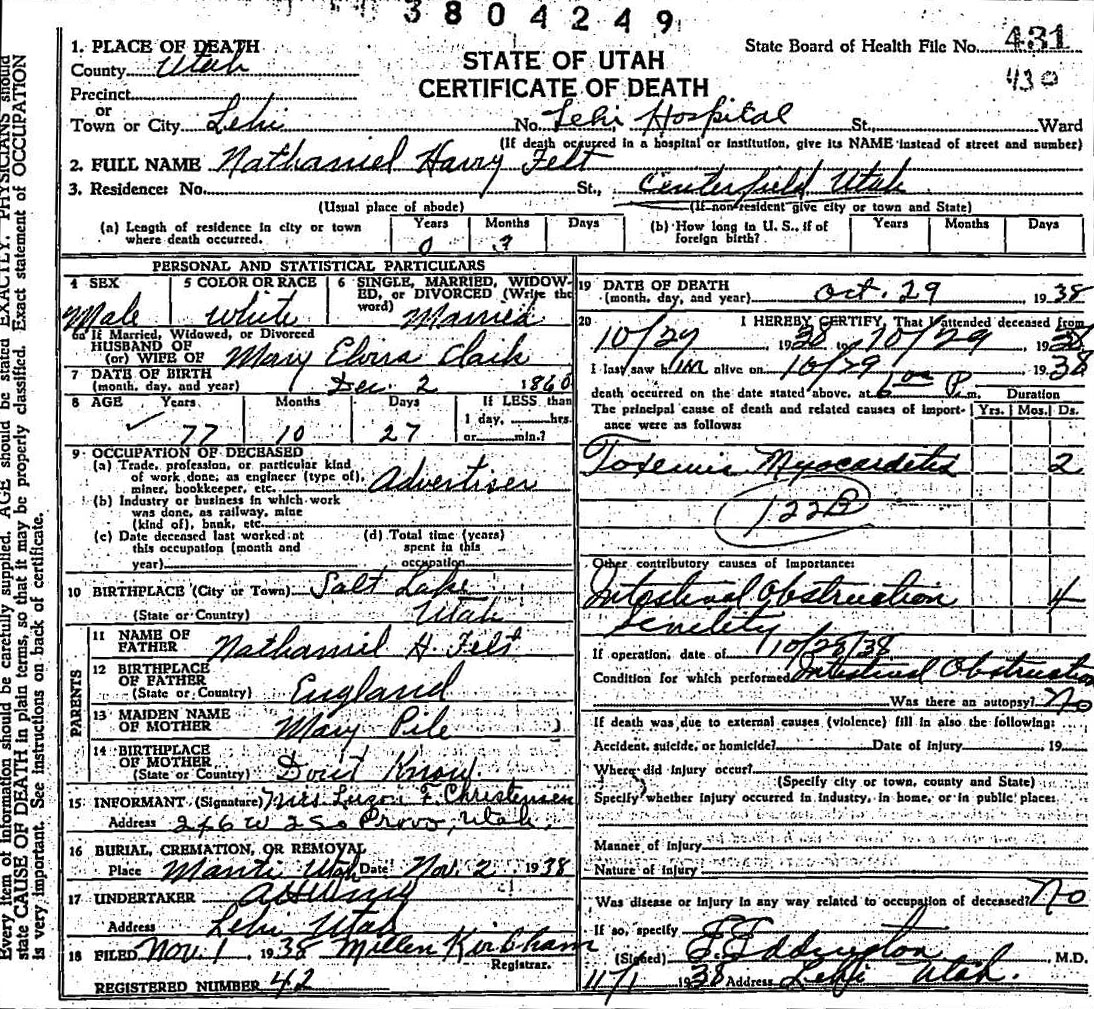 3804249
1. PLACE OF DEATH
County Utah
Precinct
or
Town or City Lehi
STATE OF UTAH
CERTIFICATE OF DEATH
State Board of Health File No. 431
430
No. Lehi Hospital St., Ward
(If death occurred in a hospital or institution, give its NAME instead of street and number)
2. FULL NAME Nathaniel Harry Felt
3. Residence: No. St., Centerfield Utah
(Usual place of abode) (If non-resident give city or town and State)
(a) Length of residence in city or town where death occurred. Years 0 Months ? Days
(b) How long in U. S., if of foreign birth? Years Months Days
PERSONAL AND STATISTICAL PARTICULARS
4 SEX Male
5 COLOR OR RACE White
6 SINGLE, MARRIED, WIDOWED, or DIVORCED (Write the word) Married
6a If Married, Widowed, or Divorced
HUSBAND OF
(or) WIFE OF Mary Elvira Clark
7 DATE OF BIRTH
(month, day, and year) Dec. 2 1860
8 AGE Years 77 Months 10 Days 27 If LESS than 1 day, hrs. or min.?
9 OCCUPATION OF DECEASED
(a) Trade, profession, or particular kind of work done, as engineer (type of), miner, bookkeeper, etc. Advertiser
(b) Industry or business in which work was done, as railway, mine (kind of), bank, etc.
(c) Date deceased last worked at this occupation (month and year)
(d) Total time (years) spent in this occupation
10 BIRTHPLACE (City or Town) Salt Lake
(State or Country) Utah
PARENTS
11 NAME OF FATHER Nathaniel H. Felt
12 BIRTHPLACE OF FATHER (State or Country) England
13 MAIDEN NAME OF MOTHER Mary Pile
14 BIRTHPLACE OF MOTHER (State or Country) Dont Know
15 INFORMANT (Signature) Mrs Luzon F. Christensen
Address 246 W 2 So Provo, Utah.
16 BURIAL, CREMATION, OR REMOVAL
Place Manti Utah Date Nov. 2 1938
17 UNDERTAKER
Address Lehi Utah
18 FILED Nov. 1 1938 Millen Kirkham
Registrar.
REGISTERED NUMBER 42
19 DATE OF DEATH
(month, day, and year) Oct. 29, 1938
20 I HEREBY CERTIFY, That I attended deceased from
10/27, 1938 to 10/29, 1938
I last saw him alive on 10/29, 1938
death occurred on the date stated above, at 6:00 P. m. Duration
The principal cause of death and related causes of importance were as follows: Yrs. Mos. Ds.
Toxemia Myocarditis 2
122B
Other contributory causes of importance:
Intestinal Obstruction 4
Senility
If operation, date of 10/28/38
Condition for which performed Intestinal Obstruction
Was there an autopsy? No
If death was due to external causes (violence) fill in also the following:
Accident, suicide, or homicide? Date of injury 19
Where did injury occur?
(Specify city or town, county and State)
Specify whether injury occurred in industry, in home, or in public place:
Manner of injury
Nature of injury
Was disease or injury in any way related to occupation of deceased? No
If so, specify
(Signed) F. Eddington M.D.
11/1 1938 Address Lehi Utah.
Every item of information should be carefully supplied. AGE should be stated EXACTLY. PHYSICIANS should
state CAUSE OF DEATH in plain terms, so that it may be properly classified. Exact statement of OCCUPATION
is very important. See instructions on back of certificate.